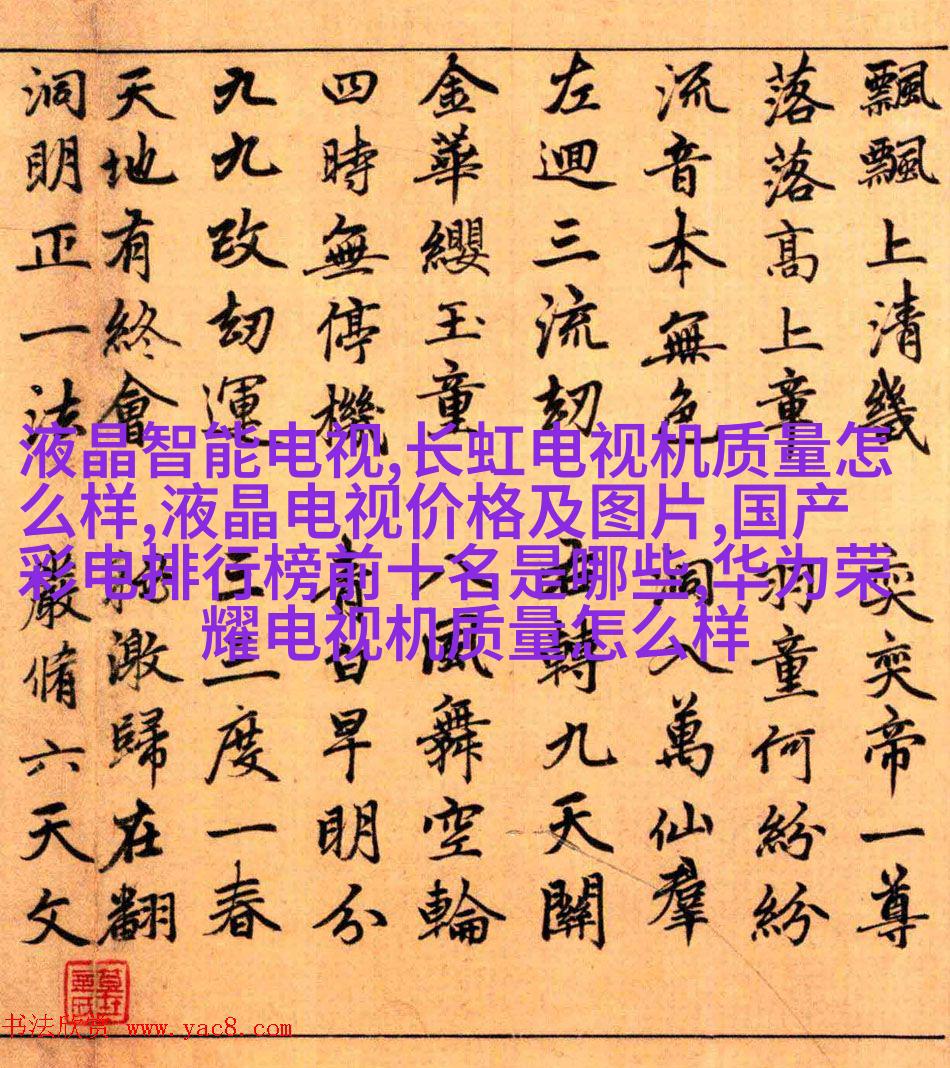 飄飄上清幾 奕奕帝一尊
落落高上童 羽童何紛紛
流音本無色 洞入萬仙羣
左迴三流劫 轉九天關
金華纓玉童 八風舞空輪
四時無停機 早明分
九九改劫運 三三度一春
天地有終會 激歸在翻
洞明正一法 嚴脩六天文
液晶智能电视,长虹电视机质量怎
么样,液晶电视价格及图片,国产
彩电排行榜前十名是哪些,华为荣
耀电视机质量怎么样
书法欣赏 www.yac8.com